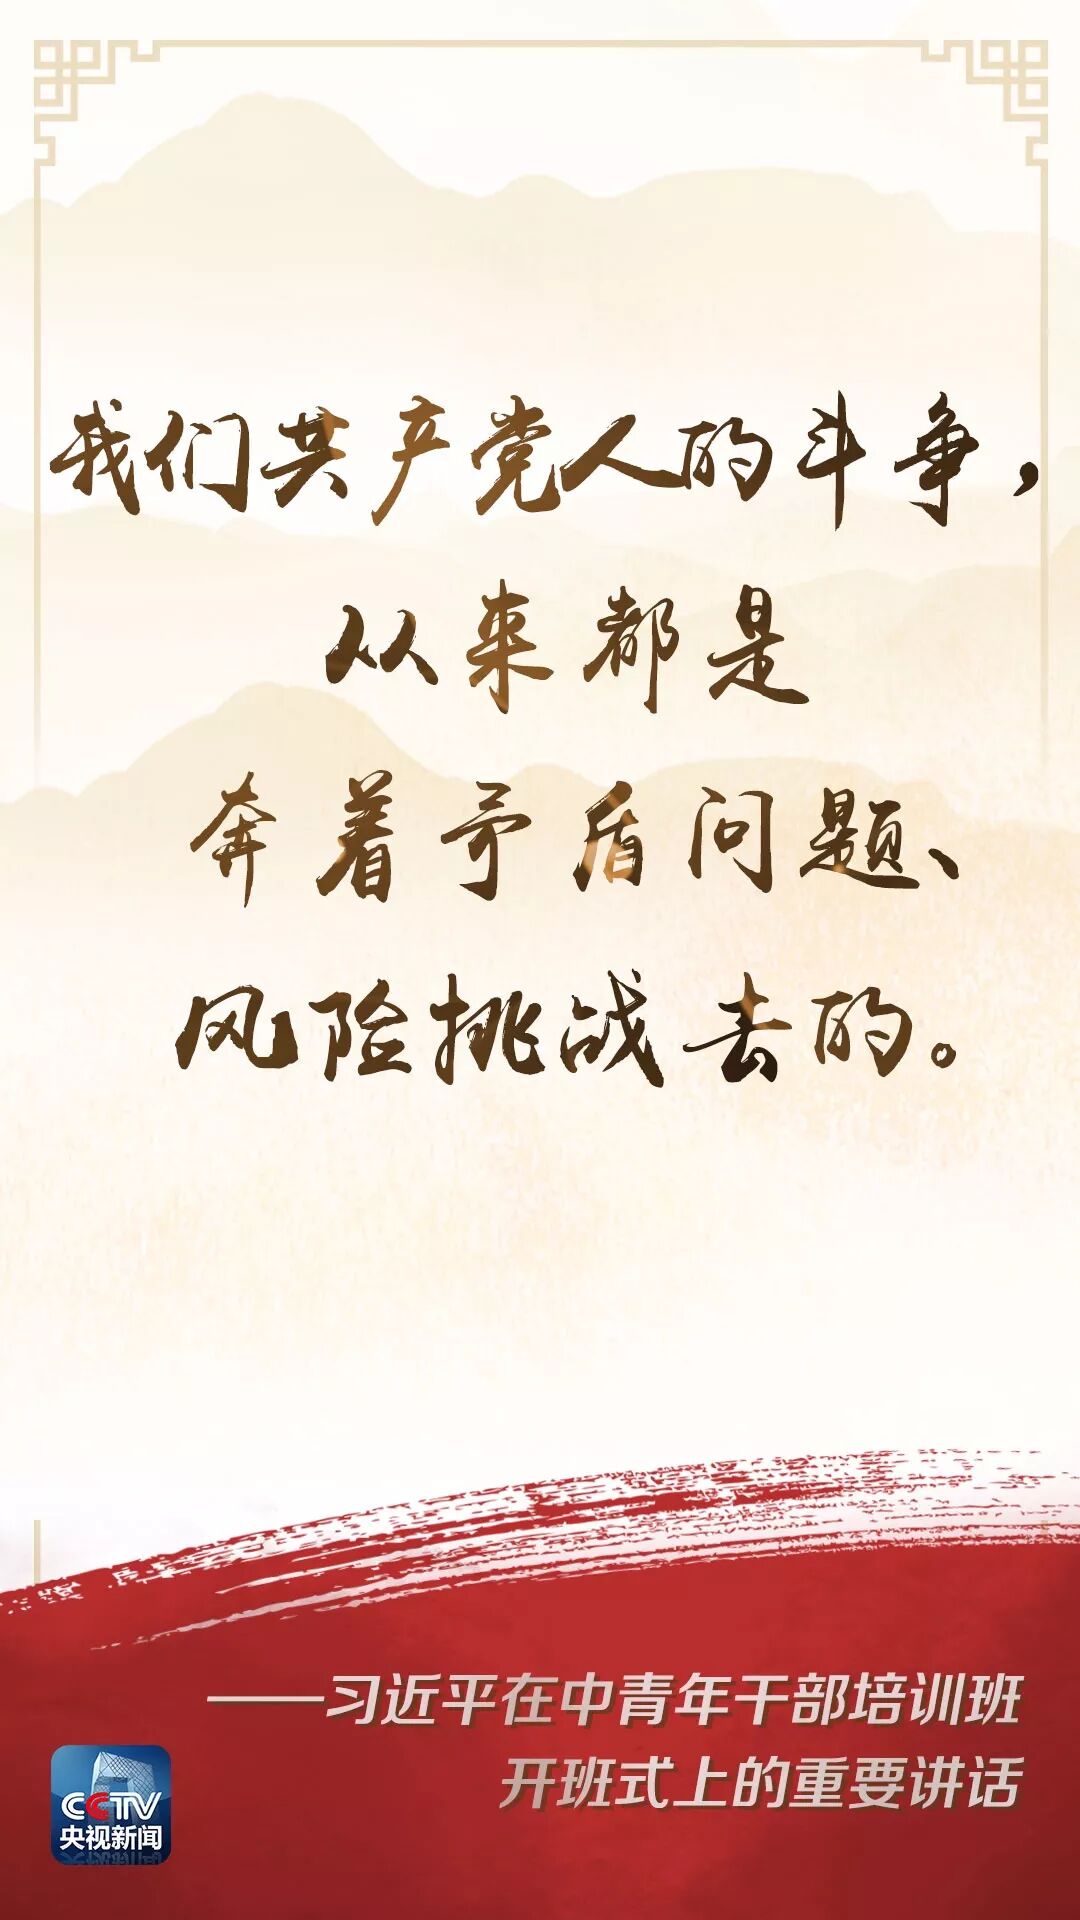 我们共产党人的斗争，
从来都是
奔着矛盾问题、
风险挑战去的。
——习近平在中青年干部培训班
开班式上的重要讲话
CCTV
央视新闻